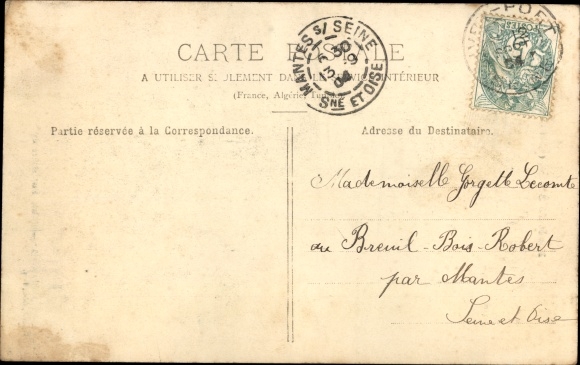 CARTE
A UTILISER SEULEMENT DANS LE SERVICE INTÉRIEUR
(France, Algérie, Tunisie)
MANTES S/ SEINE
SNE ET OISE
Partie réservée à la Correspondance.
Adresse du Destinataire.
Mademoiselle Gorgette Lecomte
au Breuil-Bois-Robert
par Mantes
Seine et Oise